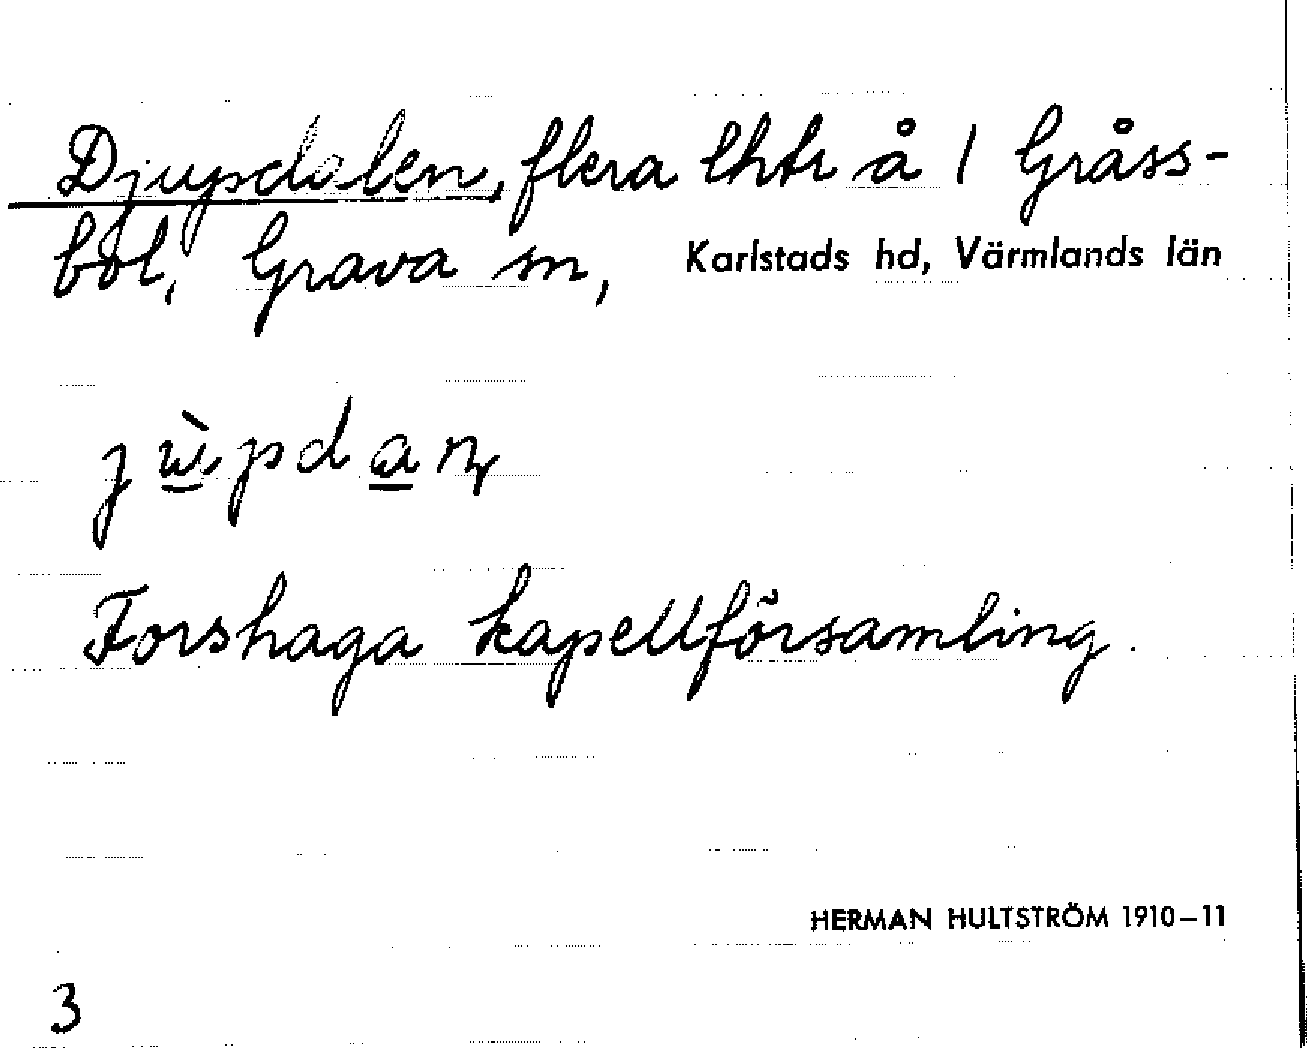 Djupdalen, flera lhtr å 1 Gråss-
bol, Grava sn, Karlstads hd, Värmlands län
jùpdaɳ
Forshaga kapellförsamling.
HERMAN HULTSTRÖM 1910–11
3